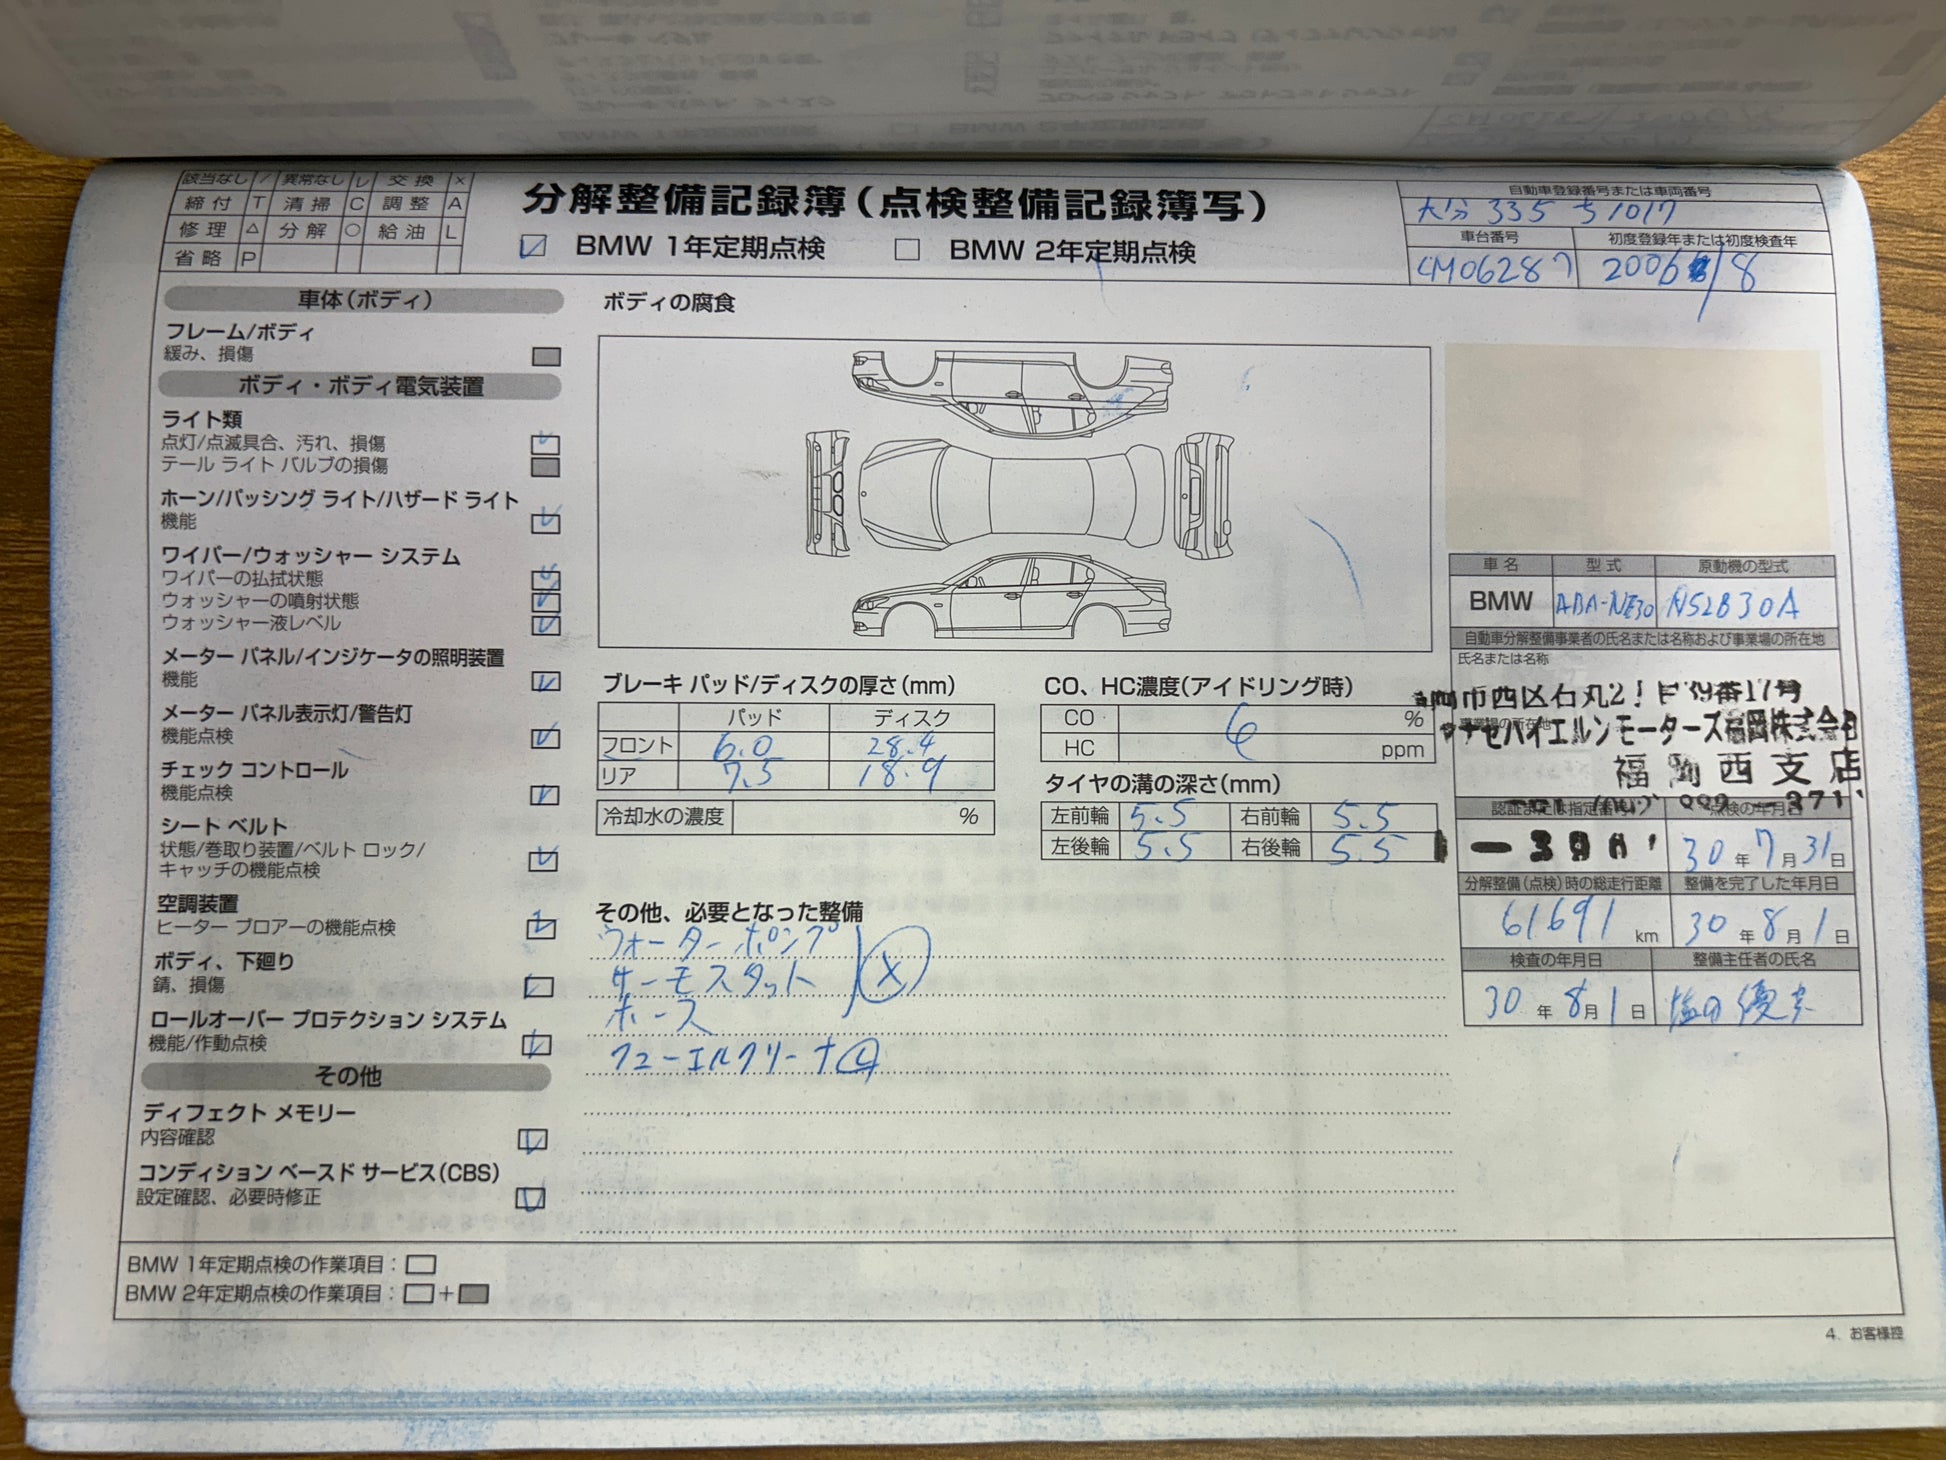 該当なし / 異常なし レ 交換 ×
締付 T 清掃 C 調整 A
修理 △ 分解 ○ 給油 L
省略 P
分解整備記録簿(点検整備記録簿写)
BMW 1年定期点検 BMW 2年定期点検
自動車登録番号または車両番号
大分 335 ち1017
車台番号 初度登録年または初度検査年
CM06287 2006/8
車体(ボディ)
フレーム/ボディ
緩み、損傷
ボディ・ボディ電気装置
ライト類
点灯/点滅具合、汚れ、損傷
テール ライト バルブの損傷
ホーン/パッシング ライト/ハザード ライト
機能
ワイパー/ウォッシャー システム
ワイパーの払拭状態
ウォッシャーの噴射状態
ウォッシャー液レベル
メーター パネル/インジケータの照明装置
機能
メーター パネル表示灯/警告灯
機能点検
チェック コントロール
機能点検
シート ベルト
状態/巻取り装置/ベルト ロック/
キャッチの機能点検
空調装置
ヒーター ブロアーの機能点検
ボディ、下廻り
錆、損傷
ロールオーバー プロテクション システム
機能/作動点検
その他
ディフェクト メモリー
内容確認
コンディション ベースド サービス(CBS)
設定確認、必要時修正
ボディの腐食
ブレーキ パッド/ディスクの厚さ(mm)
パッド ディスク
フロント 6.0 28.4
リア 7.5 18.9
冷却水の濃度 %
CO、HC濃度(アイドリング時)
CO %
6
HC ppm
タイヤの溝の深さ(mm)
左前輪 5.5 右前輪 5.5
左後輪 5.5 右後輪 5.5
その他、必要となった整備
ウォーターポンプ
サーモスタット ×
ホース
フューエルクリーナ L
車名 型式 原動機の型式
BMW ABA-NE30 N52B30A
自動車分解整備事業者の氏名または名称および事業場の所在地
氏名または名称
市西区石丸2丁目39番17号
事業場の所在地
セバイエルンモーターズ福岡株式会社
福岡西支店
認証または指定番号 点検の年月日
30年7月31日
分解整備(点検)時の総走行距離 整備を完了した年月日
61691 km 30年8月1日
検査の年月日 整備主任者の氏名
30年8月1日
BMW 1年定期点検の作業項目:
BMW 2年定期点検の作業項目: +
4. お客様控